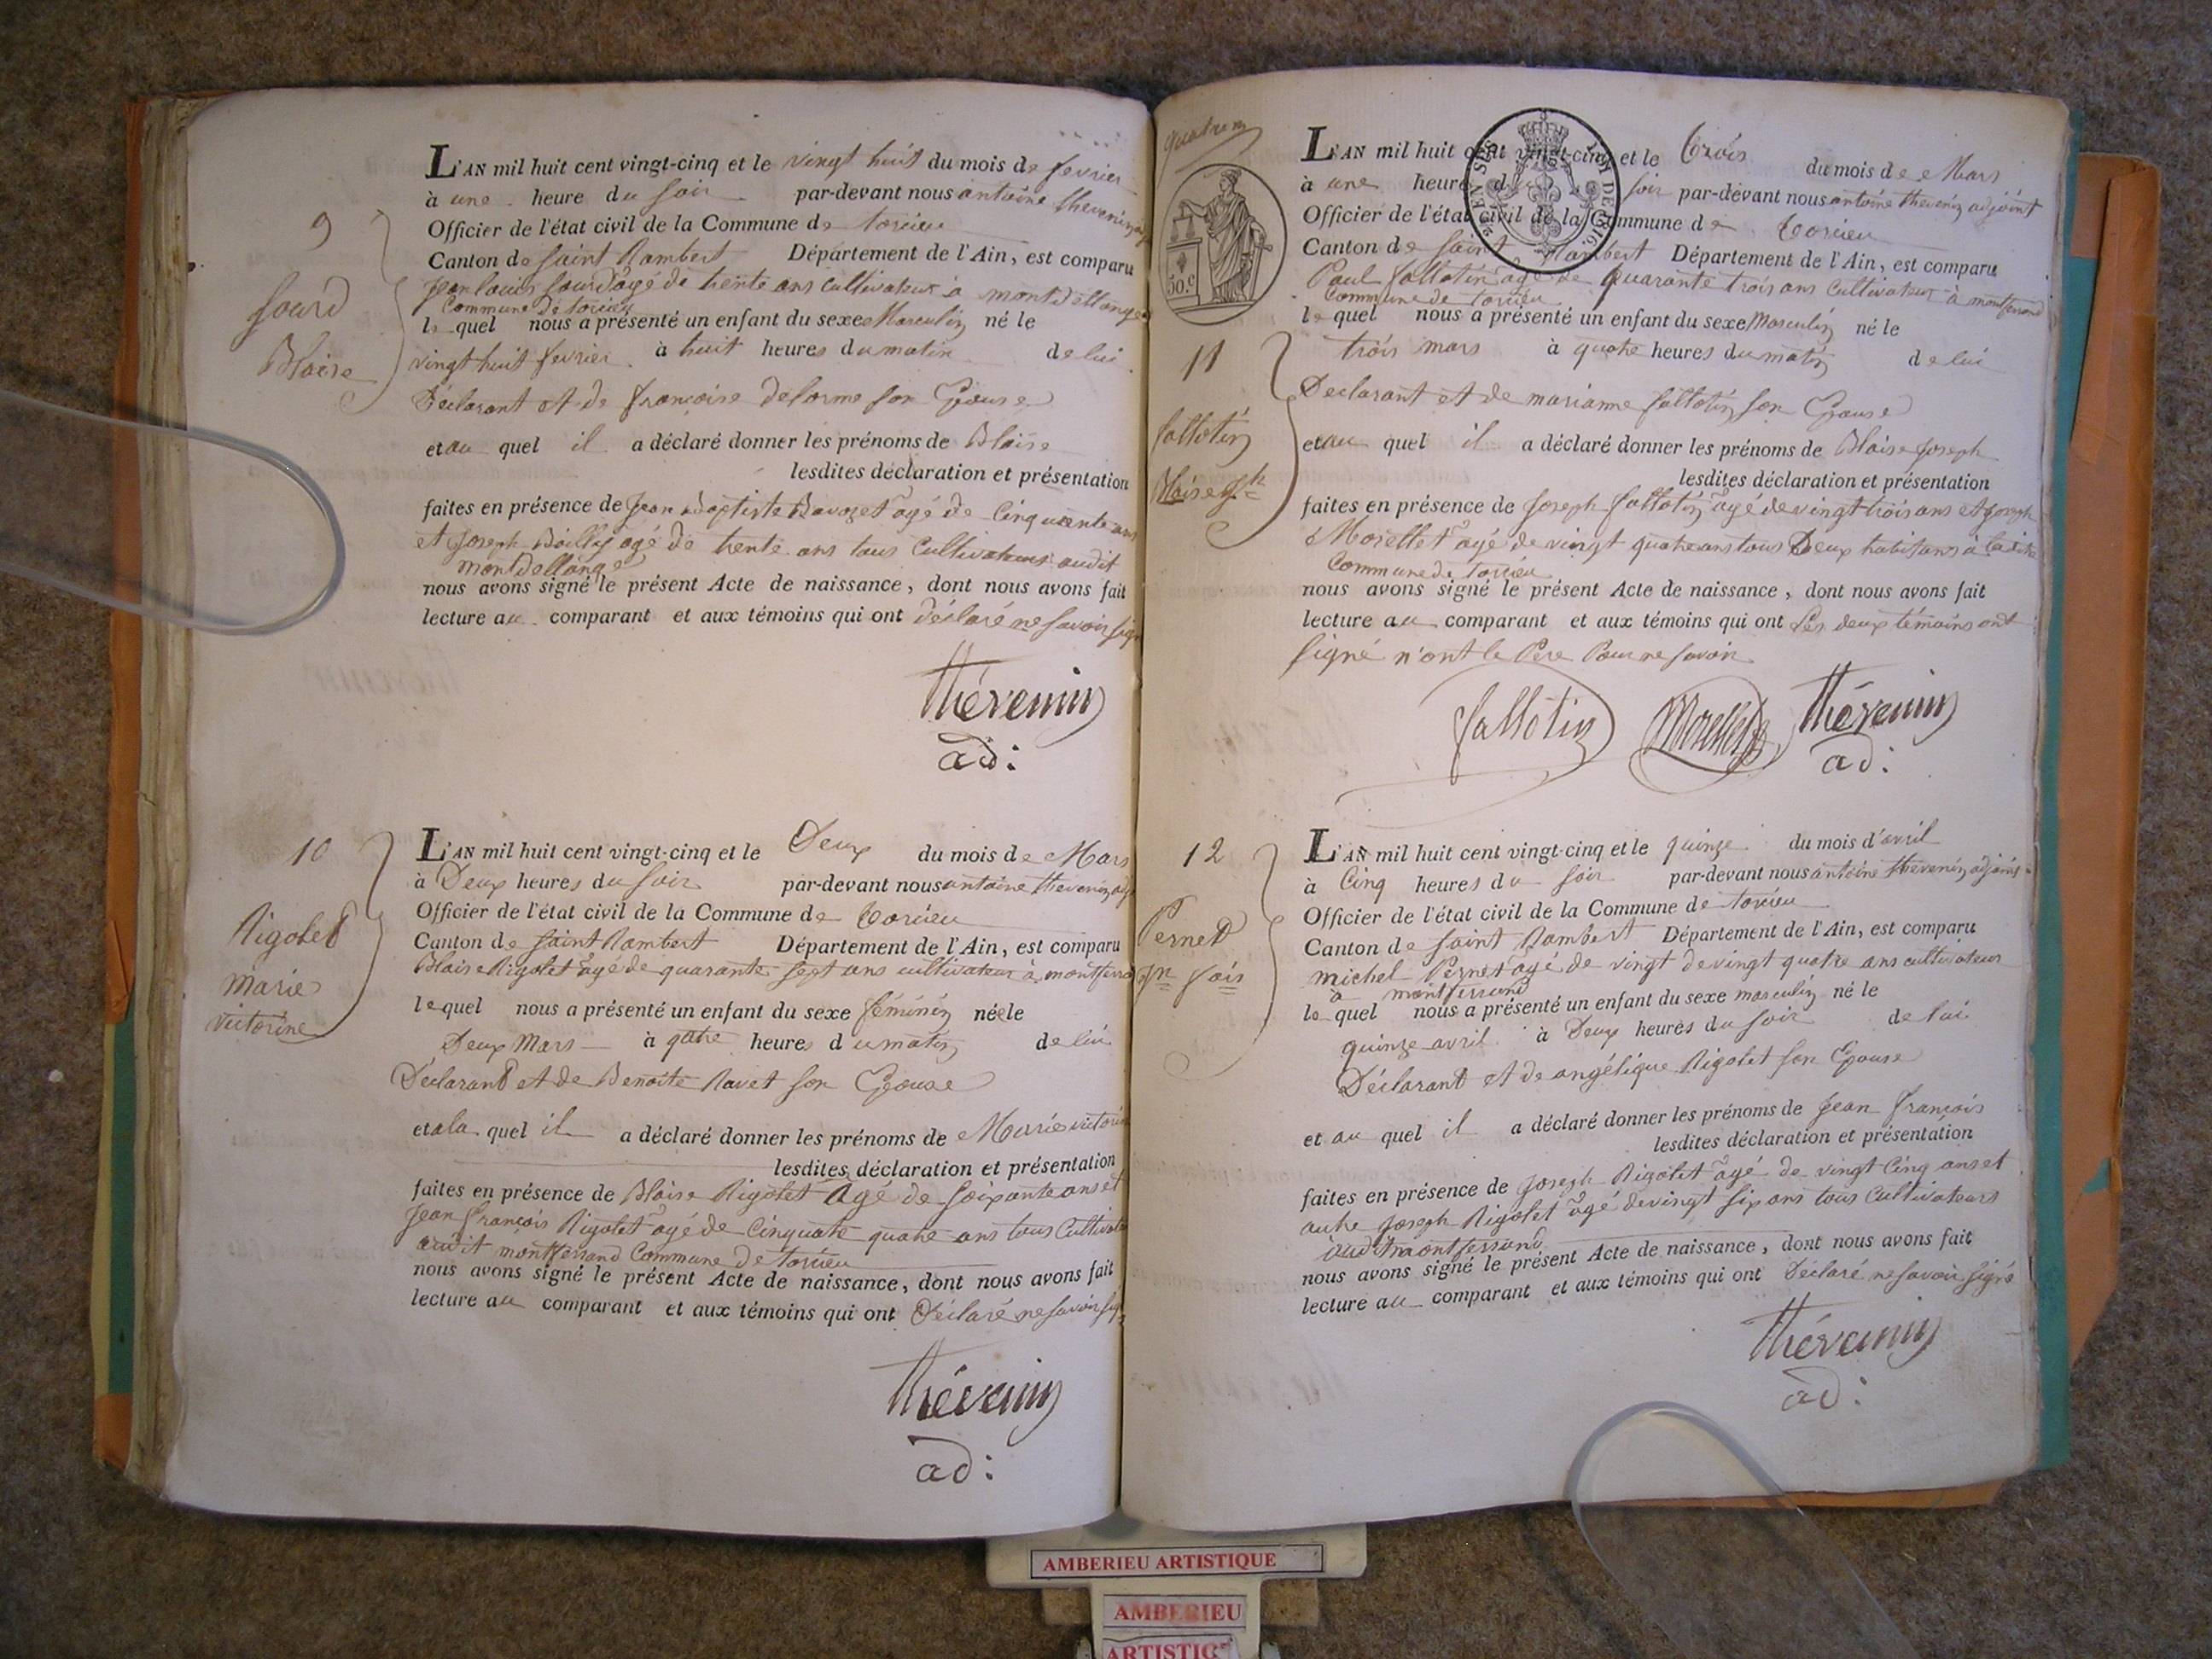 9
Sourd
Blaise
L'AN mil huit cent vingt-cinq et le vingt huit du mois de fevrier
à une heure du soir par-devant nous antoine thevenin
Officier de l'état civil de la Commune de torcieu
Canton de saint Rambert Département de l'Ain, est comparu
Jean louis Sourd agé de trente ans cultivateur à montdellange
Commune de torcieu
le quel nous a présenté un enfant du sexe Masculin né le
vingt huit fevrier à huit heures du matin de lui
Déclarant et de françoise delorme son Epouse
et au quel il a déclaré donner les prénoms de Blaise
lesdites déclaration et présentation
faites en présence de Jean Baptiste Bavozet agé de Cinquante ans
et Joseph Bailly agé de trente ans tous Cultivateurs audit
montdellange
nous avons signé le présent Acte de naissance, dont nous avons fait
lecture au comparant et aux témoins qui ont déclaré ne savoir sign
thévenin
ad:
10
Rigolet
Marie
victorine
L'AN mil huit cent vingt-cinq et le Deux du mois de Mars
à Deux heures du soir par-devant nous antoine thevenin adj
Officier de l'état civil de la Commune de torcieu
Canton de saint Rambert Département de l'Ain, est comparu
Blaise Rigolet agé de quarante sept ans cultivateur à montferra
le quel nous a présenté un enfant du sexe féminin née le
Deux Mars à qatre heures du matin de lui
Déclarant et de Benoite Ravet son Epouse
et a la quel il a déclaré donner les prénoms de Marie victorin
lesdites déclaration et présentation
faites en présence de Blaise Rigolet agé de soixante ans et
Jean françois Rigolet agé de Cinquate quatre ans tous Cultivat
audit montferrand Commune de torcieu
nous avons signé le présent Acte de naissance, dont nous avons fait
lecture au comparant et aux témoins qui ont Déclaré ne savoir sign
thévenin
ad:
50.c
TIM DE 1816.
11
fallotin
Blaise Jh
L'AN mil huit cent vingt-cinq et le trois du mois de Mars
à une heure du soir par-devant nous antoine thevenin adjoint
Officier de l'état civil de la Commune de torcieu
Canton de saint Rambert Département de l'Ain, est comparu
Paul fallotin agé de quarante trois ans Cultivateur à montferrand
Commune de torcieu
le quel nous a présenté un enfant du sexe Masculin né le
trois mars à quatre heures du matin de lui
Declarant et de marianne fallotin son Epouse
et au quel il a déclaré donner les prénoms de Blaise Joseph
lesdites déclaration et présentation
faites en présence de Joseph fallotin agé de vingt trois ans et Joseph
Morellet agé de vingt quatre ans tous Deux habitans à ladite
Commune de torcieu
nous avons signé le présent Acte de naissance, dont nous avons fait
lecture au comparant et aux témoins qui ont Les deux témoins ont
signé n'ont le Pere Pour ne savoir
fallotin Morellet thévenin
ad:
12
Pernet
Jn fois
L'AN mil huit cent vingt-cinq et le quinze du mois d'avril
à Cinq heures du soir par-devant nous antoine thevenin adjoint
Officier de l'état civil de la Commune de torcieu
Canton de saint Rambert Département de l'Ain, est comparu
michel Pernet agé de vingt de vingt quatre ans cultivateur
a montferrand
le quel nous a présenté un enfant du sexe masculin né le
quinze avril à Deux heures du soir de lui
Déclarant et de angélique Rigolet son Epouse
et au quel il a déclaré donner les prénoms de Jean françois
lesdites déclaration et présentation
faites en présence de Joseph Rigolet agé de vingt Cinq ans et
autre Joseph Rigolet agé de vingt six ans tous Cultivateurs
audit montferrand
nous avons signé le présent Acte de naissance, dont nous avons fait
lecture au comparant et aux témoins qui ont Déclaré ne savoir signé
thévenin
ad:
AMBERIEU ARTISTIQUE
AMBERIEU
ARTISTIC